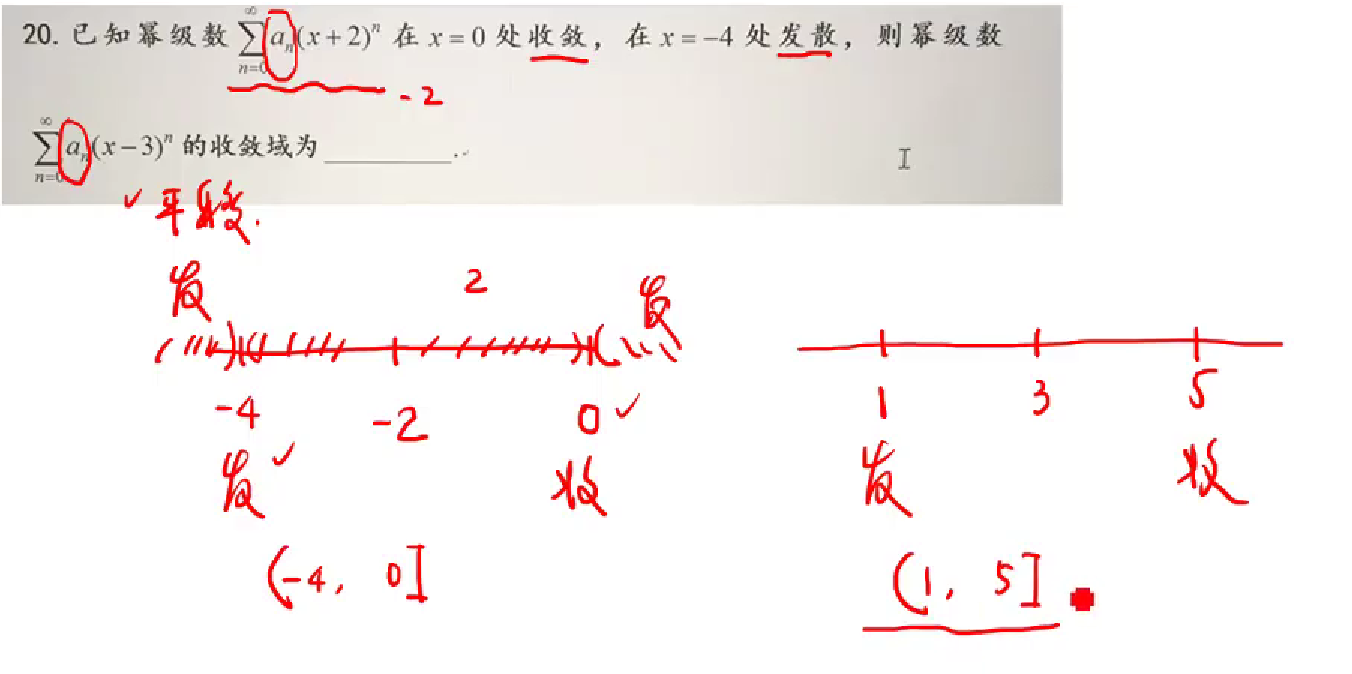 20. 已知幂级数 $\sum_{n=0}^{\infty} a_n(x+2)^n$ 在 x = 0 处收敛，在 x = −4 处发散，则幂级数
-2
$\sum_{n=0}^{\infty} a_n(x-3)^n$ 的收敛域为 ________.
✓ 平移.
发 2 发
-4 -2 0 ✓ 1 3 5
发 ✓ 收 发 收
(-4, 0] (1, 5]